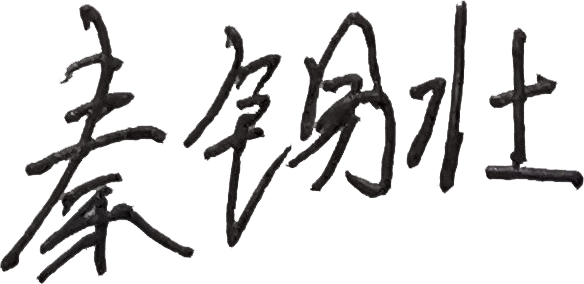 秦锡壮